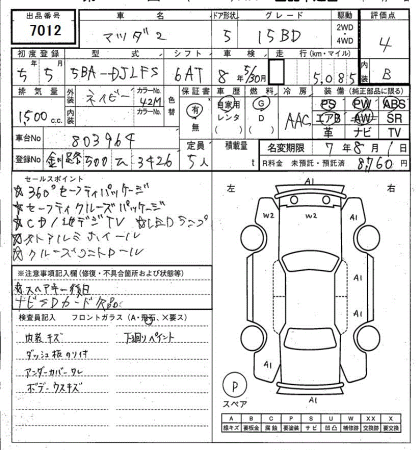 出品番号 7012
車名 マツダ2
ドア形状 5
グレード 15BD
駆動 2WD 4WD
評価点 4
初度登録 5年5月
型式 5BA-DJLFS
シフト 6AT
車検 8年5月30日
走行 (km・マイル) 5,085
B
排気量 1,500 c.c.
外装 ネイビー
カラーNo. 42M
内装
カラーNo.
色替 有 無
車歴 自家用 レンタ
燃費 G D
冷房 AAC
装備(純正部品に限る)
PS PW ABS
エアB AW SR
革 ナビ TV
車台No 803964
定員 5人
積載量 t
名変期限 7年8月1日
登録No 釧路 500 ム 3426
R料金 未預託・預託済 8,760円
セールスポイント
☆360°セーフティパッケージ
☆セーフティクルーズパッケージ
☆CD/地デジTV ☆LEDランプ
☆ストアルミホイール
☆クルーズコントロール
※注意事項記入欄(修復・不具合箇所および状態等)
☆スペアキー後日
ナビSDカード欠品
検査員記入 フロントガラス(A・飛石、×要ス)
内装キズ 下廻りペイント
ダッシュ板のり付
アンダーカバーワレ
ボデーウスキズ
左 右
A1
W2 W2
A1
A1
A1
A1
P
スペア
A B C P S U W X XX
線キズ 要板金 腐蝕 要塗装 サビ 凹凸 補修跡 要交換 交換済